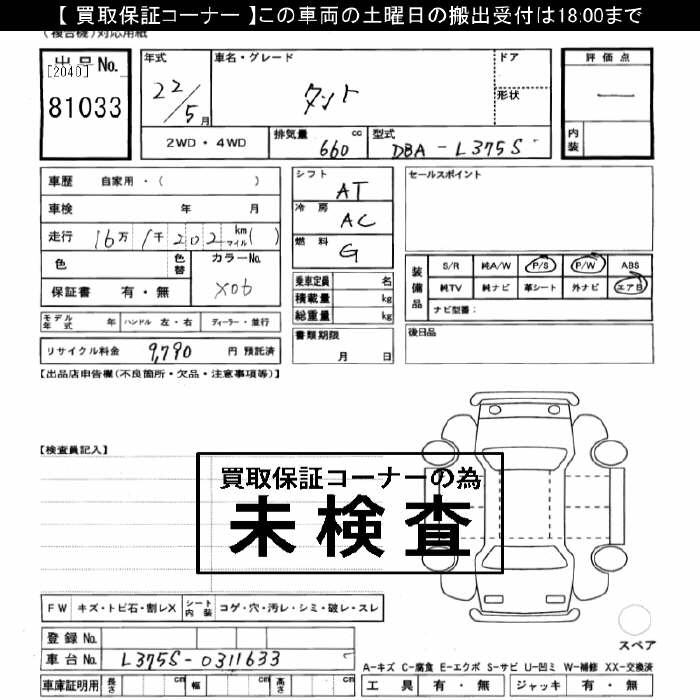 【 買取保証コーナー 】この車両の土曜日の搬出受付は18:00まで
(複合機)対応用紙
出品No.
[2040]
81033
年式
22/5月
車名・グレード
タント
ドア
形状
評価点
一
内装
2WD・4WD
排気量 660 cc
型式 DBA-L375S
車歴 自家用・( )
車検 年 月
走行 16万 1千 202 km マイル ( )
色
色替
カラーNo.
X06
保証書 有・無
モデル年式 年 ハンドル 左・右 ディーラー・並行
リサイクル料金 9,790 円 預託済
シフト AT
冷房 AC
燃料 G
乗車定員 名
積載量 kg
総重量 kg
書類期限
月 日
セールスポイント
装備品
S/R 純A/W P/S P/W ABS
純TV 純ナビ 革シート 外ナビ エアB
ナビ型番:
後日品
【出品店申告欄(不良箇所・欠品・注意事項等)】
【検査員記入】
買取保証コーナーの為
未検査
FW キズ・トビ石・割レX シート内装 コゲ・穴・汚レ・シミ・破レ・スレ
登録No.
車台No. L375S-0311633
車庫証明用 長さ cm 幅 cm 高さ cm
スペア
A-キズ C-腐食 E-エクボ S-サビ U-凹ミ W-補修 XX-交換済
工具 有・無 ジャッキ 有・無